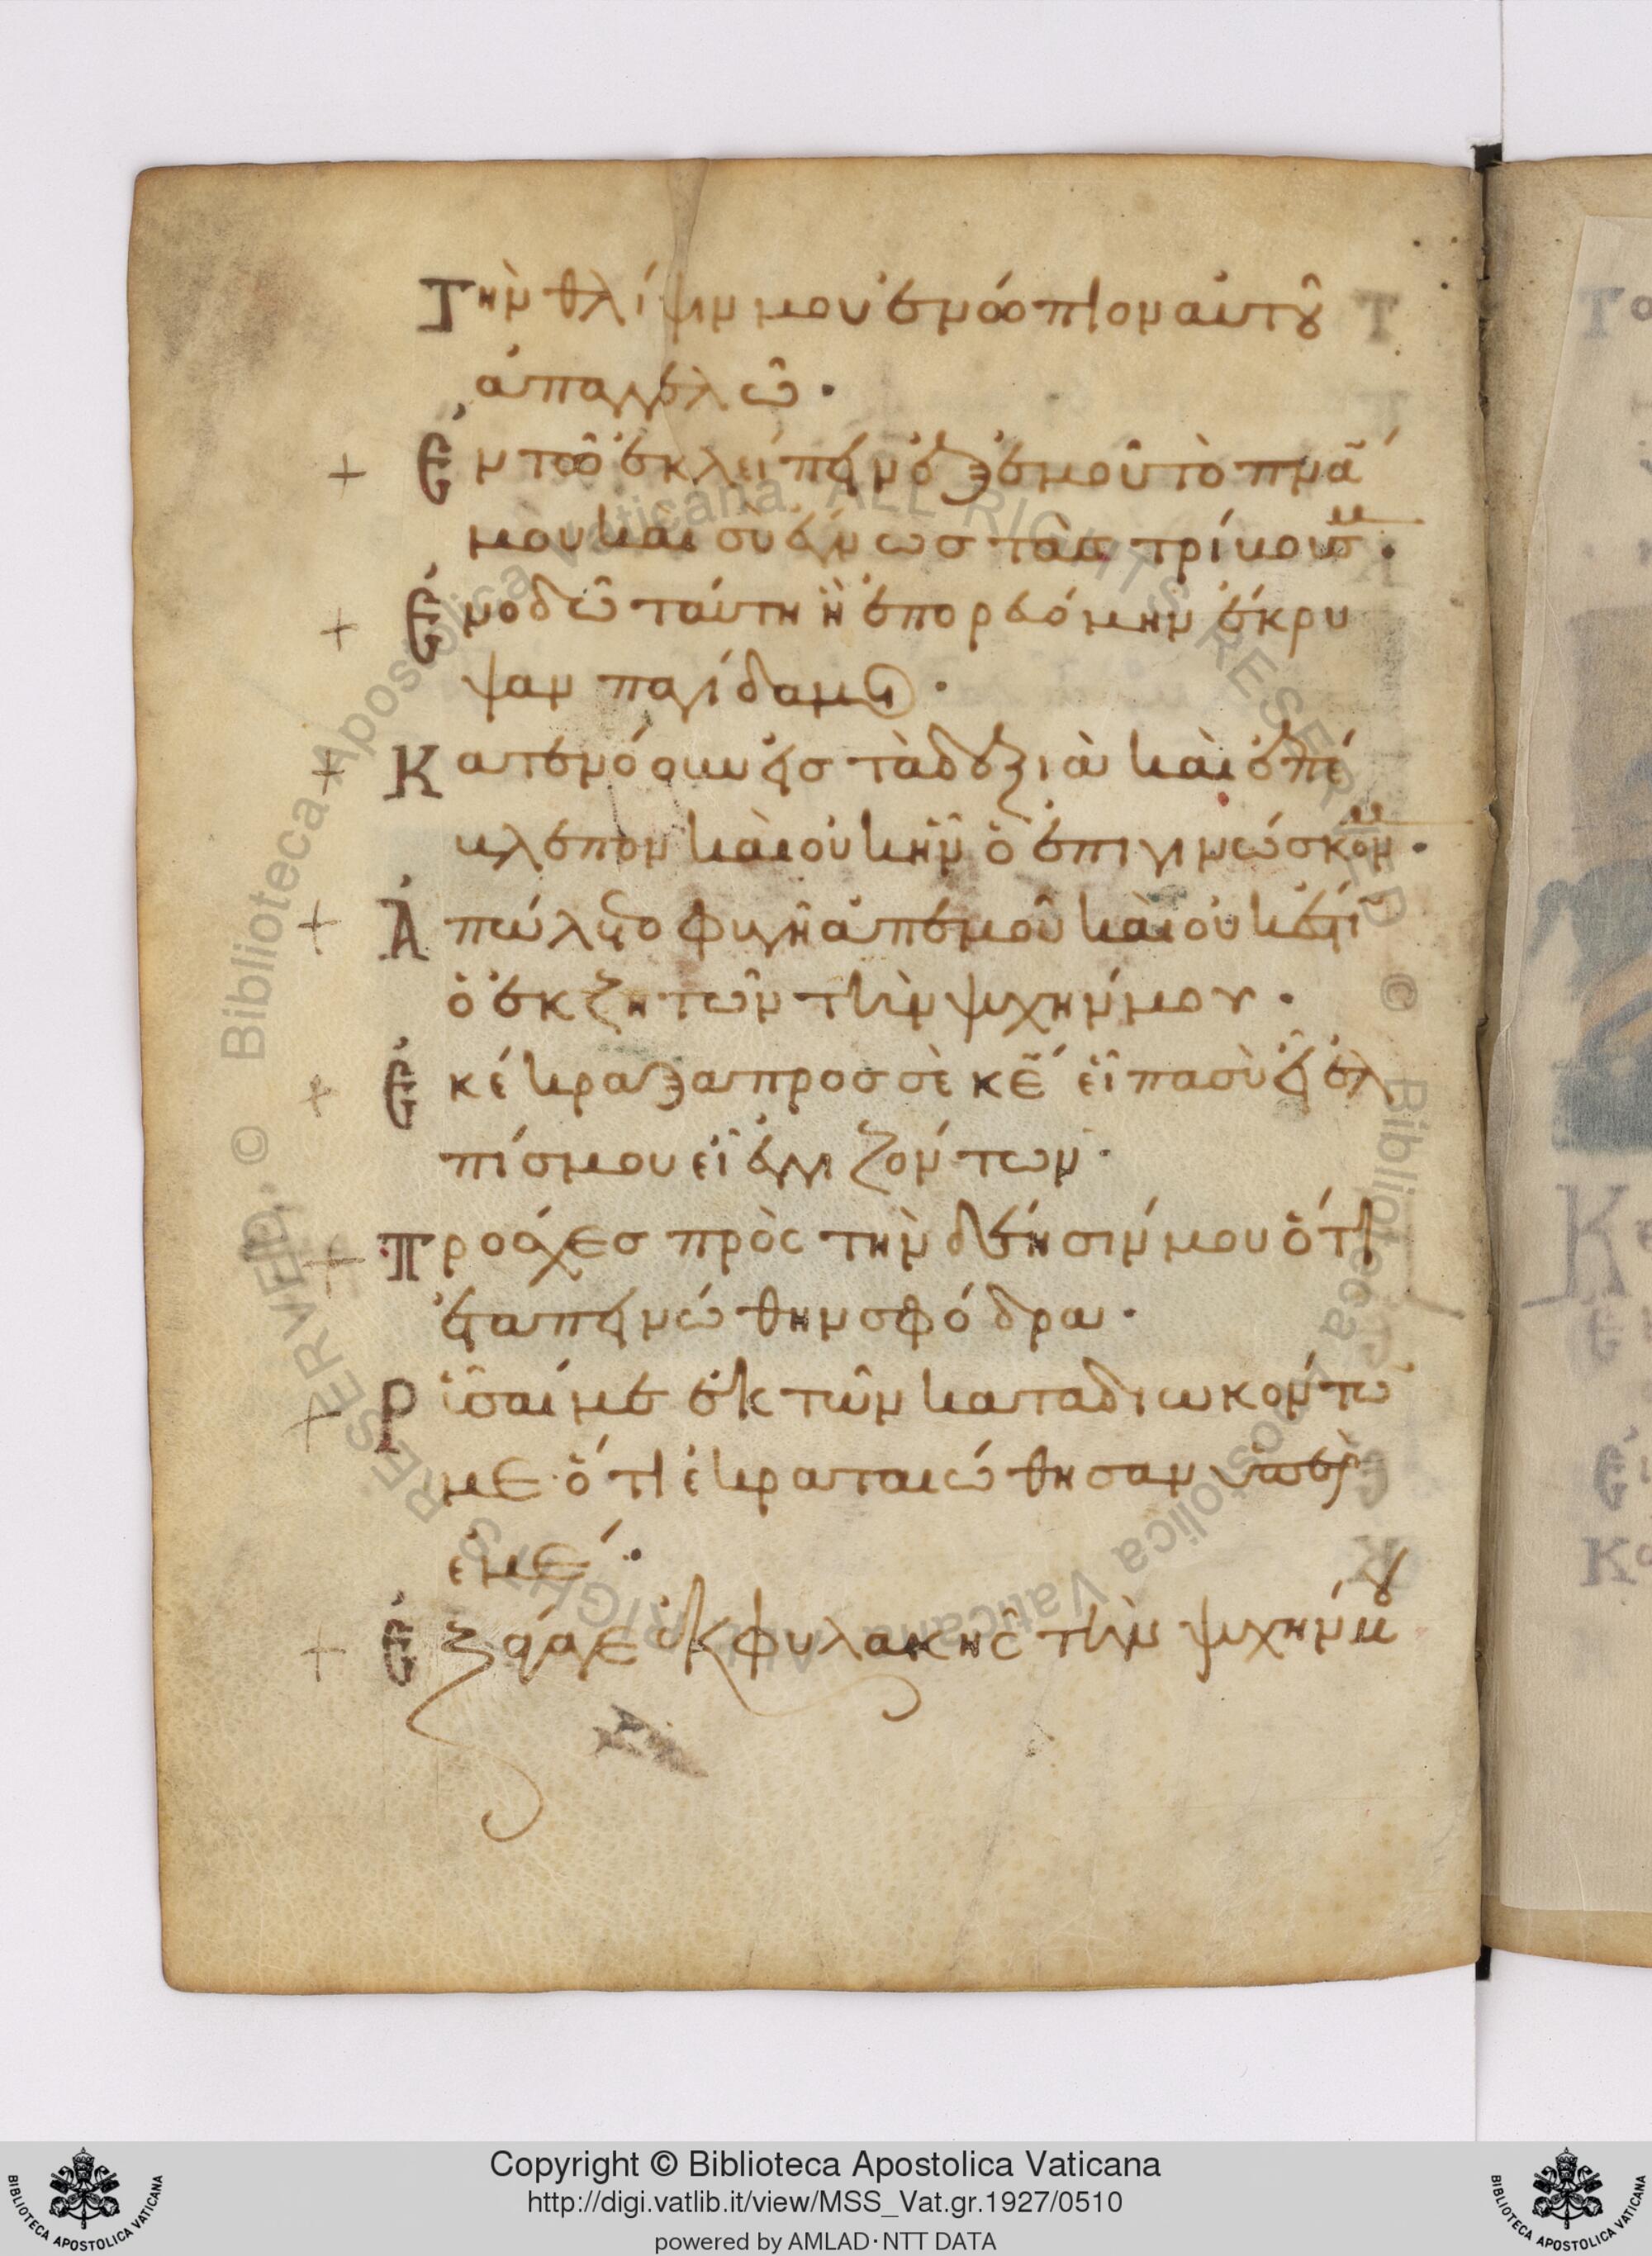 Τὴν θλίψιν μου ἐνώπιον αὐτοῦ
ἀπαγγελῶ·
+ Ἐν τῶ ἐκλείπειν ἐξ ἐμοῦ τὸ πνᾶ
μου καὶ σὺ ἔγνωσ τὰσ τρίβουσ μου·
+ Ἐν ὁδῶ ταύτη ἧ ἐπορευόμην ἔκρυ
ψαν παγίδα μοι·
+ Κατενόουν εἰσ τὰ δεξιὰ καὶ ἐπέ
βλεπον καὶ οὐκ ἦν ὁ ἐπιγινώσκων με·
+ Ἀπώλετο φυγὴ ἀπ' ἐμοῦ καὶ οὐκ ἔστιν
ὁ ἐκζητῶν τὴν ψυχήν μου·
+ Ἐκέκραξα πρὸσ σὲ κε εἶπα σὺ εἶ ἐλ
πίσ μου εἶ ἐν γῆ ζόντων·
+ Πρόσχεσ πρὸς τὴν δέησίν μου ὅτι
ἐταπεινώθην σφόδρα·
+ Ρῦσαί με ἐκ τῶν καταδιωκόντω
με ὅτι ἐκραταιώθησαν ὑπὲρ
ἐμέ·
+ Ἐξάγαγε ἐκ φυλακῆς τὴν ψυχήν μου
© Biblioteca Apostolica Vaticana. ALL RIGHTS RESERVED. © Biblioteca Apostolica Vaticana. ALL RIGHTS RESERVED.
Copyright © Biblioteca Apostolica Vaticana
http://digi.vatlib.it/view/MSS_Vat.gr.1927/0510
powered by AMLAD·NTT DATA
BIBLIOTECA APOSTOLICA VATICANA
BIBLIOTECA APOSTOLICA VATICANA